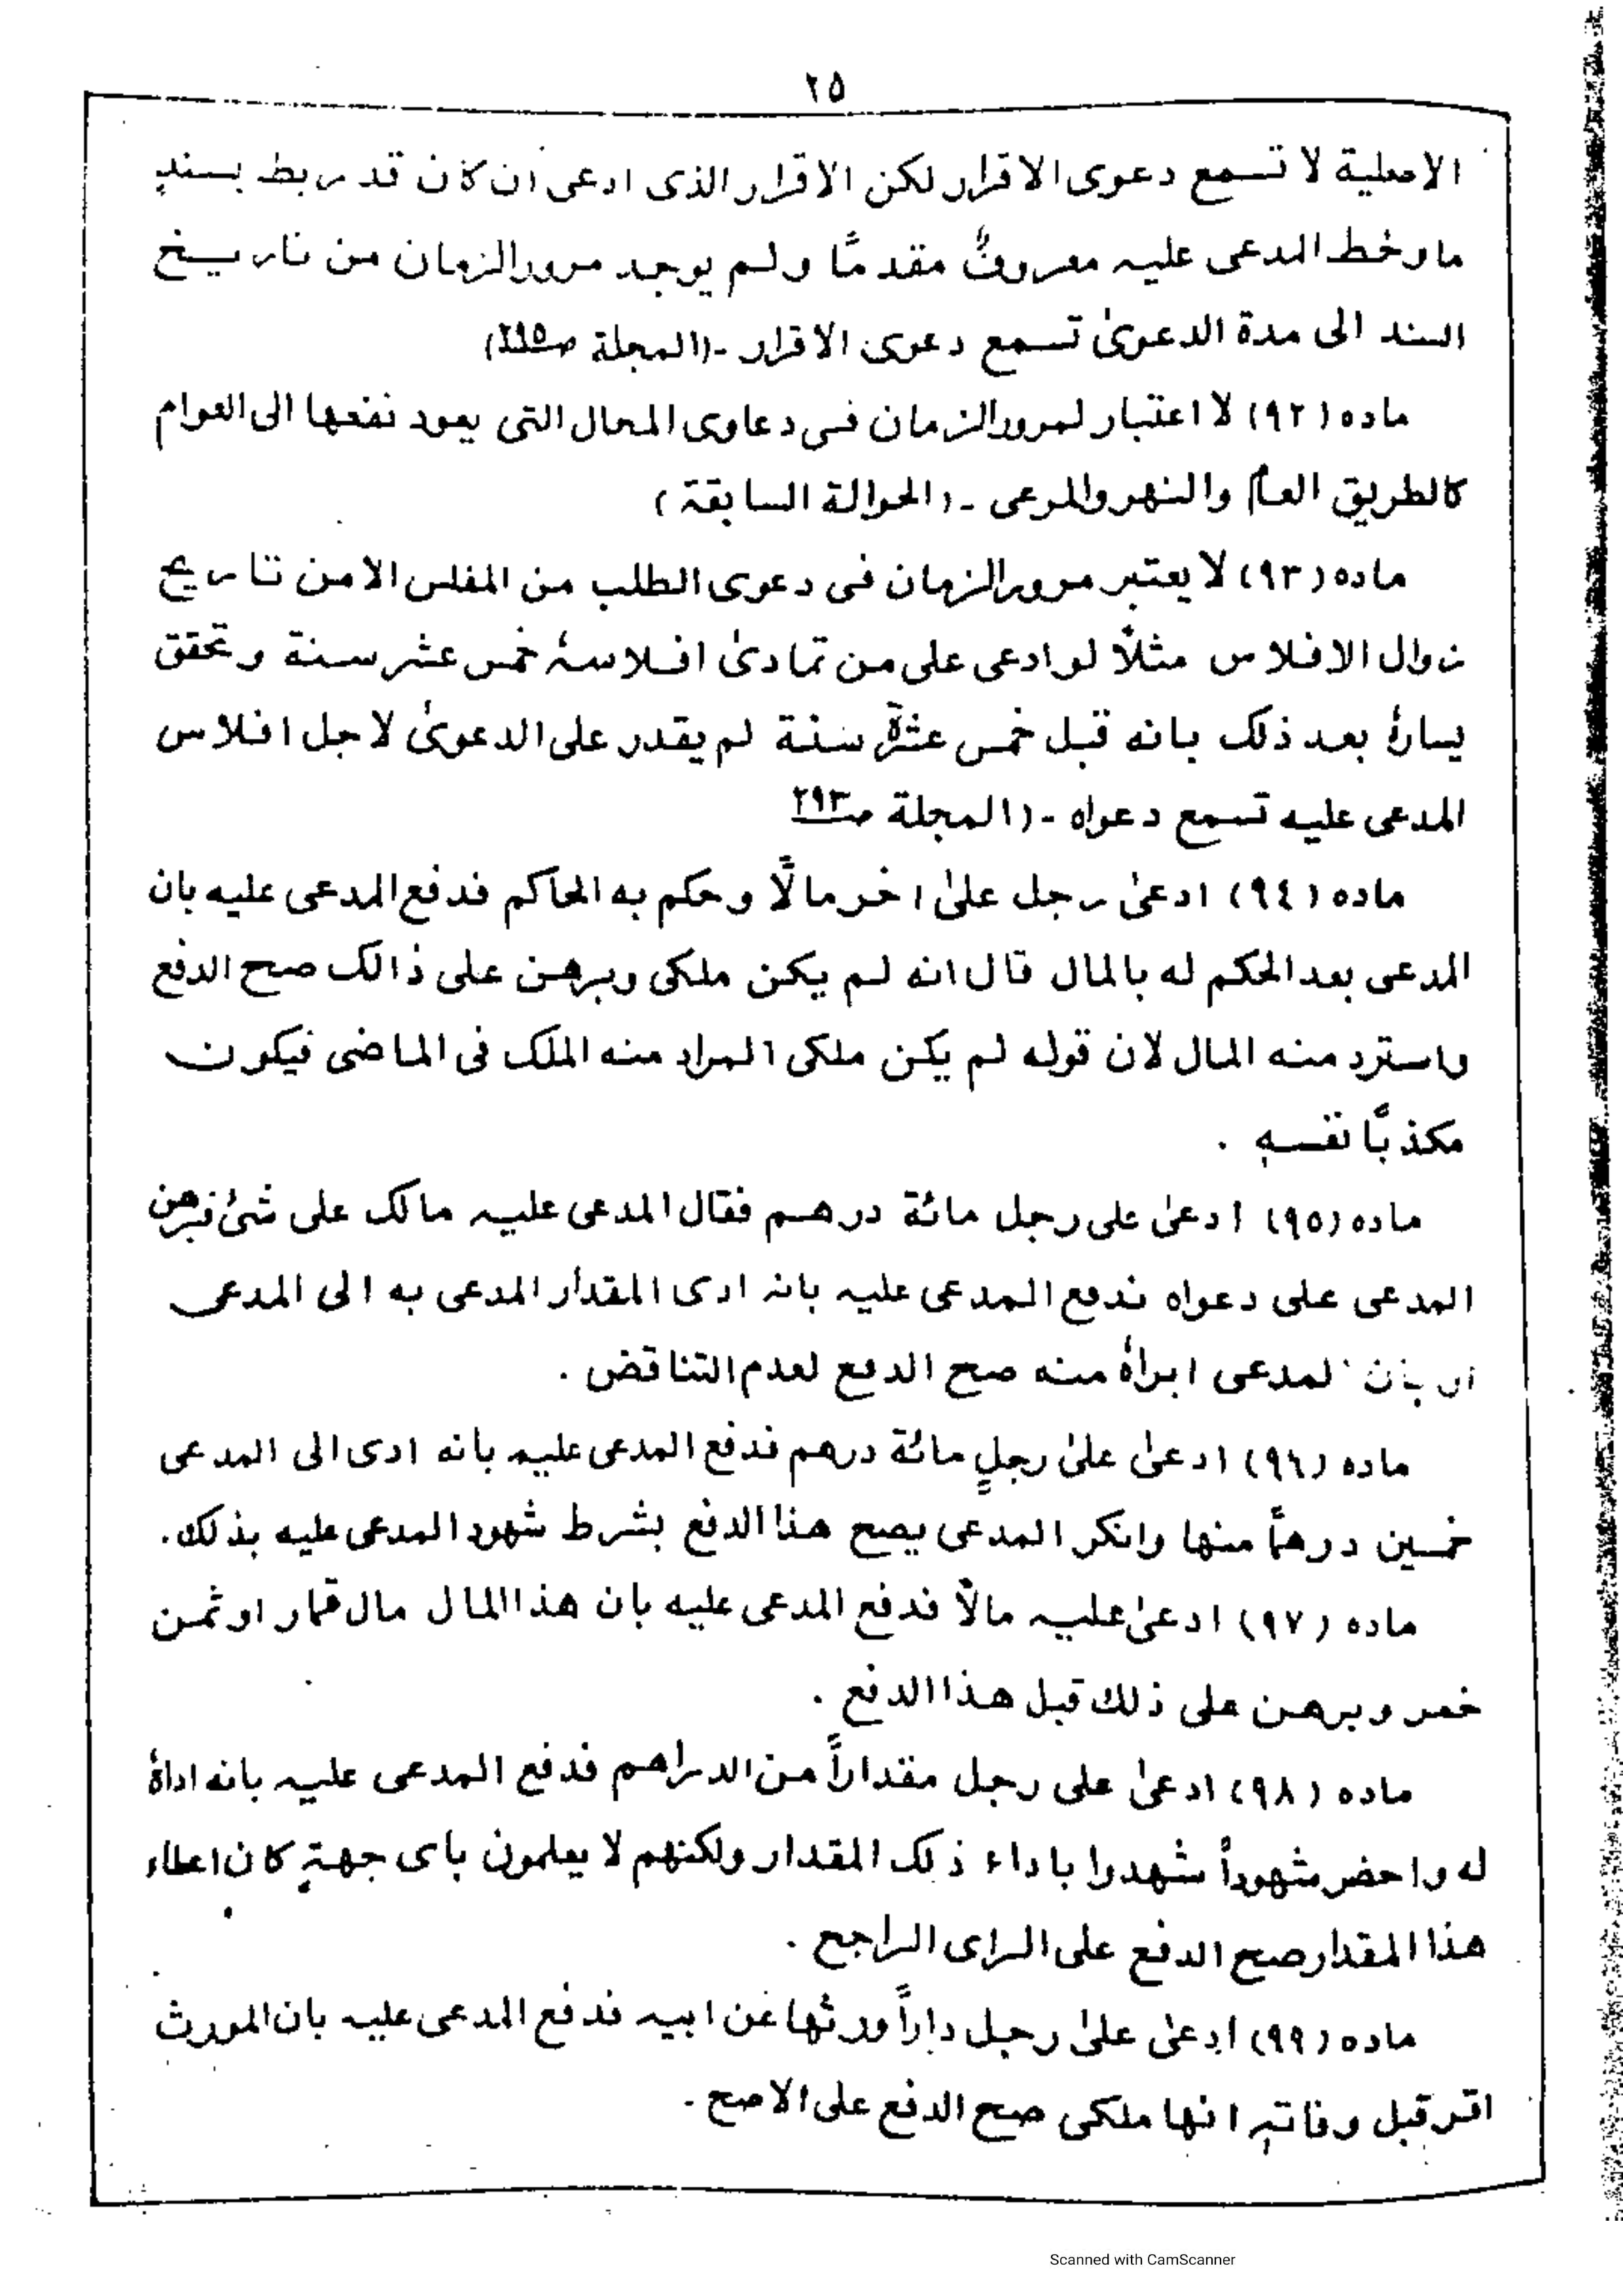 ٢٥
الاصلية لا تسمع دعوى الاقرار لكن الاقرار الذى ادعى ان كان قد ربط بسندٍ
ما وخط المدعى عليه معروفٌ مقدمًا ولم يوجد مرور الزمان من تاريخ
السند الى مدة الدعوىٰ تسمع دعوى الاقرار ـ (المجلة صـ٢٩٥)
ماده (٩٢) لا اعتبار لمرور الزمان فى دعاوى المحال التى يعود نفعها الى العوام
كالطريق العام والنهر والمرعى ـ (الحوالة السابقة)
ماده (٩٣) لا يعتبر مرور الزمان فى دعوى الطلب من المفلس الا من تاريخ
زوال الافلاس مثلًا لو ادعى على من تمادىٰ افلاسهٗ خمس عشر سنة وتحقق
يسارهٗ بعد ذلك بانه قبل خمس عشرة سنة لم يقدر على الدعوىٰ لاجل افلاس
المدعى عليه تسمع دعواه ـ (المجلة صـ٢٩٣
ماده (٩٤) ادعىٰ رجل علىٰ اخر مالًا وحكم به الحاكم فدفع المدعى عليه بان
المدعى بعد الحكم له بالمال قال انه لم يكن ملكى وبرهن على ذالك صح الدفع
واسترد منه المال لان قوله لم يكن ملكى المراد منه الملك فى الماضى فيكون
مكذبًا نفسهٖ .
ماده (٩٥) ادعىٰ على رجل مائة درهم فقال المدعى عليه مالك على شئ فبرهن
المدعى على دعواه فدفع المدعى عليه بانه ادى المقدار المدعى به الى المدعى
او بان المدعى ابراهٗ منه صح الدفع لعدم التناقض .
ماده (٩٦) ادعىٰ علىٰ رجلٍ مائة درهم فدفع المدعى عليه بانه ادى الى المدعى
خمسين درهمًا منها وانكر المدعى يصح هذا الدفع بشرط شهود المدعى عليه بذلك .
ماده (٩٧) ادعىٰ عليه مالًا فدفع المدعى عليه بان هذا المال مال قمار او ثمن
خمر وبرهن على ذلك قبل هذا الدفع .
ماده (٩٨) ادعىٰ على رجل مقداراً من الدراهم فدفع المدعى عليه بانه اداهٗ
له واحضر شهوداً شهدوا باداء ذلك المقدار ولكنهم لا يعلمون باى جهةٍ كان اعطاء
هذا المقدار صح الدفع على الراى الراجح .
ماده (٩٩) ادعىٰ علىٰ رجل داراً ورثها عن ابيه فدفع المدعى عليه بان المورث
اقر قبل وفاتهٖ انها ملكى صح الدفع على الاصح .
Scanned with CamScanner